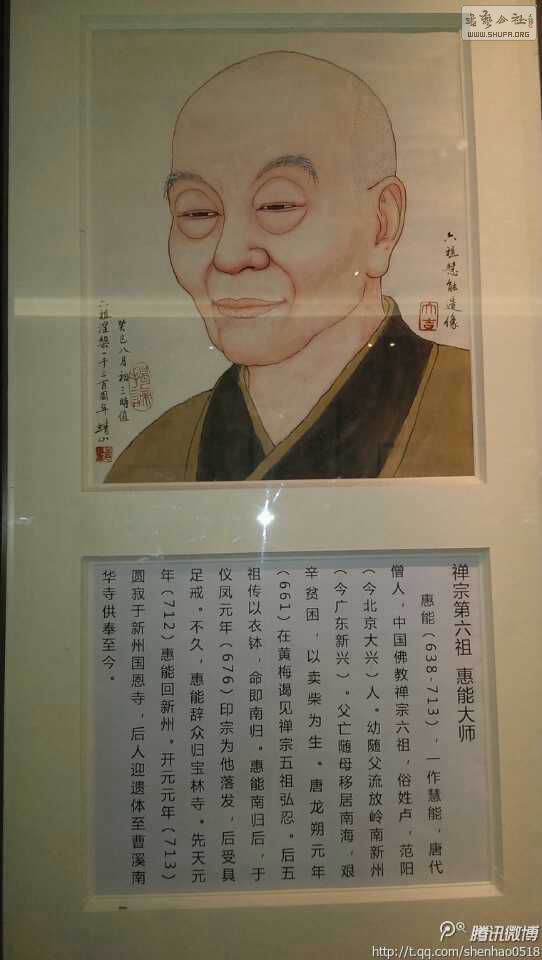 书艺公社
WWW.SHUFA.ORG
六祖慧能造像
大吉
癸巳八月初三時值
六祖涅槃一千三百周年
禅宗第六祖 惠能大师
惠能(638-713)，一作慧能，唐代
僧人，中国佛教禅宗六祖，俗姓卢，范阳
(今北京大兴)人。幼随父流放岭南新州
(今广东新兴)。父亡随母移居南海，艰
辛贫困，以卖柴为生。唐龙朔元年
(661)在黄梅谒见禅宗五祖弘忍。后五
祖传以衣钵，命即南归。惠能南归后，于
仪凤元年(676)印宗为他落发，后受具
足戒。不久，惠能辞众归宝林寺。先天元
年(712)惠能回新州。开元元年(713)
圆寂于新州国恩寺，后人迎遗体至曹溪南
华寺供奉至今。
腾讯微博
http://t.qq.com/shenhao0518